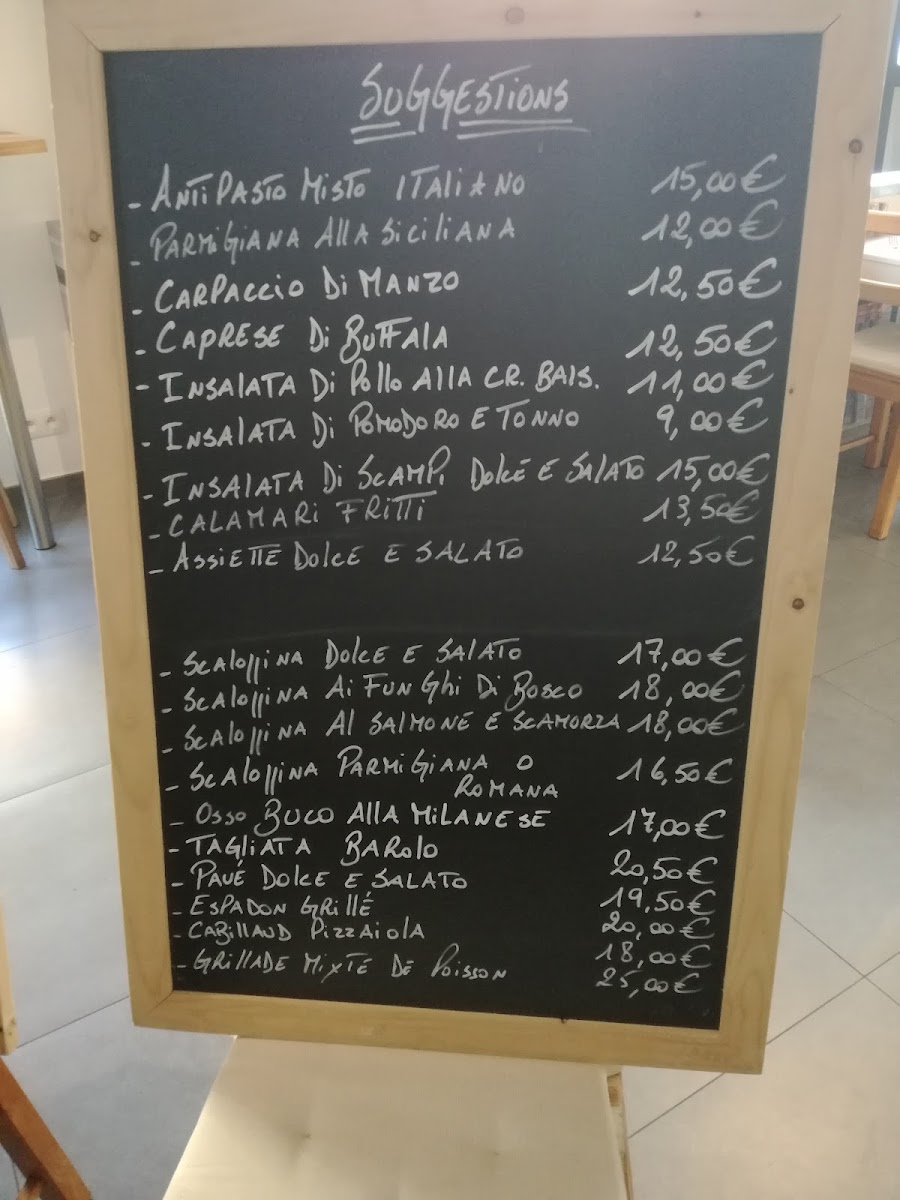 SUGGESTIONS
- ANTIPASTO MISTO ITALIANO 15,00€
- PARMIGIANA ALLA SICILIANA 12,00€
- CARPACCIO DI MANZO 12,50€
- CAPRESE DI BUFFALA 12,50€
- INSALATA DI POLLO ALLA CR. BALS. 11,00€
- INSALATA DI POMODORO E TONNO 9,00€
- INSALATA DI SCAMPI DOLCE E SALATO 15,00€
- CALAMARI FRITTI 13,50€
- ASSIETTE DOLCE E SALATO 12,50€
- SCALOPPINA DOLCE E SALATO 17,00€
- SCALOPPINA AI FUNGHI DI BOSCO 18,00€
- SCALOPPINA AL SALMONE E SCAMORZA 18,00€
- SCALOPPINA PARMIGIANA O 16,50€
ROMANA
- OSSO BUCO ALLA MILANESE 17,00€
- TAGLIATA BAROLO 20,50€
- PAVÉ DOLCE E SALATO 19,50€
- ESPADON GRILLÉ 20,00€
- CABILLAUD PIZZAIOLA 18,00€
- GRILLADE MIXTE DE POISSON 25,00€